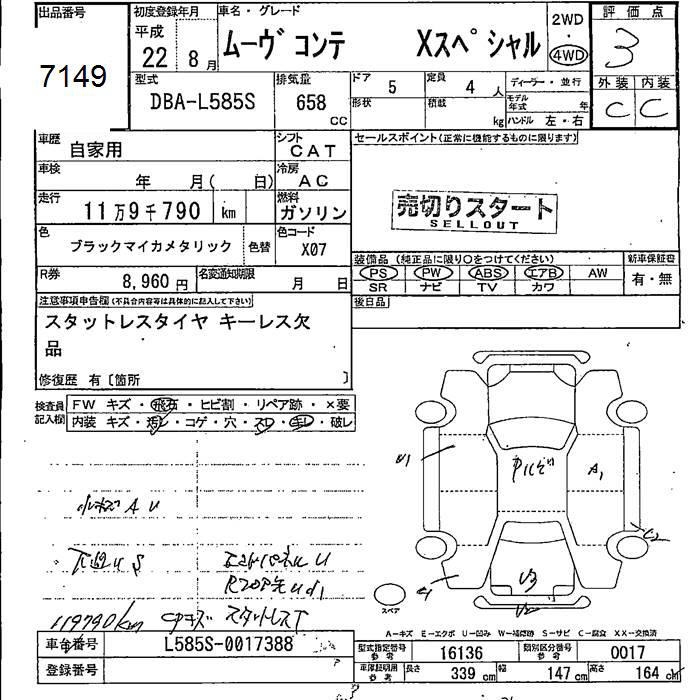 出品番号
7149
初度登録年月
平成
22 8月
車名・グレード
ムーヴ コンテ Xスペシャル
2WD
・
4WD
評価点
3
外装 内装
C C
型式
DBA-L585S
排気量
658
CC
ドア 5
定員 4人
形状
積載 kg
ディーラー・並行
モデル年式 年
ハンドル 左・右
車歴 自家用
シフト CAT
車検 年 月( 日)
冷房 AC
走行 11万9千790 km
燃料 ガソリン
色 ブラックマイカメタリック 色替
色コード X07
R券 8,960円
名変通知期限 月 日
セールスポイント(正常に機能するものに限ります)
売切りスタート
SELLOUT
装備品(純正品に限り○をつけてください)
PS PW ABS エアB AW
SR ナビ TV カワ
新車保証書
有・無
後日品
注意事項申告欄(不具合内容等は具体的に記入して下さい)
スタットレスタイヤ キーレス欠
品
修復歴 有〔箇所 〕
検査員記入欄
FW キズ・飛石・ヒビ割・リペア跡・×要
内装 キズ・汚レ・コゲ・穴・スレ・キレ・破レ
小キズ A U
下廻り S
119790km
スタットレスT
U1
A1
U3
スペア
A－キズ E－エクボ U－凹み W－補修跡 S－サビ C－腐食 XX－交換済
車台番号 L585S-0017388
登録番号
型式指定番号参考 16136
類別区分番号参考 0017
車庫証明用参考 長さ 339cm 幅 147cm 高さ 164cm